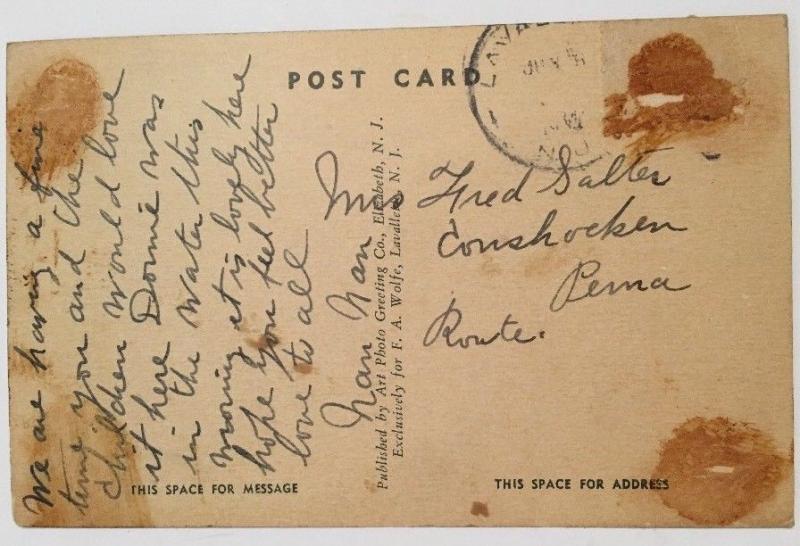 POST CARD
We are having a fine
time you and the
children would love
it here Donnie was
in the water this
morning it is lovely here
hope you feel better
love to all
Nan Nan
Published by Art Photo Greeting Co., Elizabeth, N. J.
Exclusively for F. A. Wolfe, Lavallette, N. J.
Mrs Fred Salter
Conshocken
Penna
Route.
THIS SPACE FOR MESSAGE
THIS SPACE FOR ADDRESS